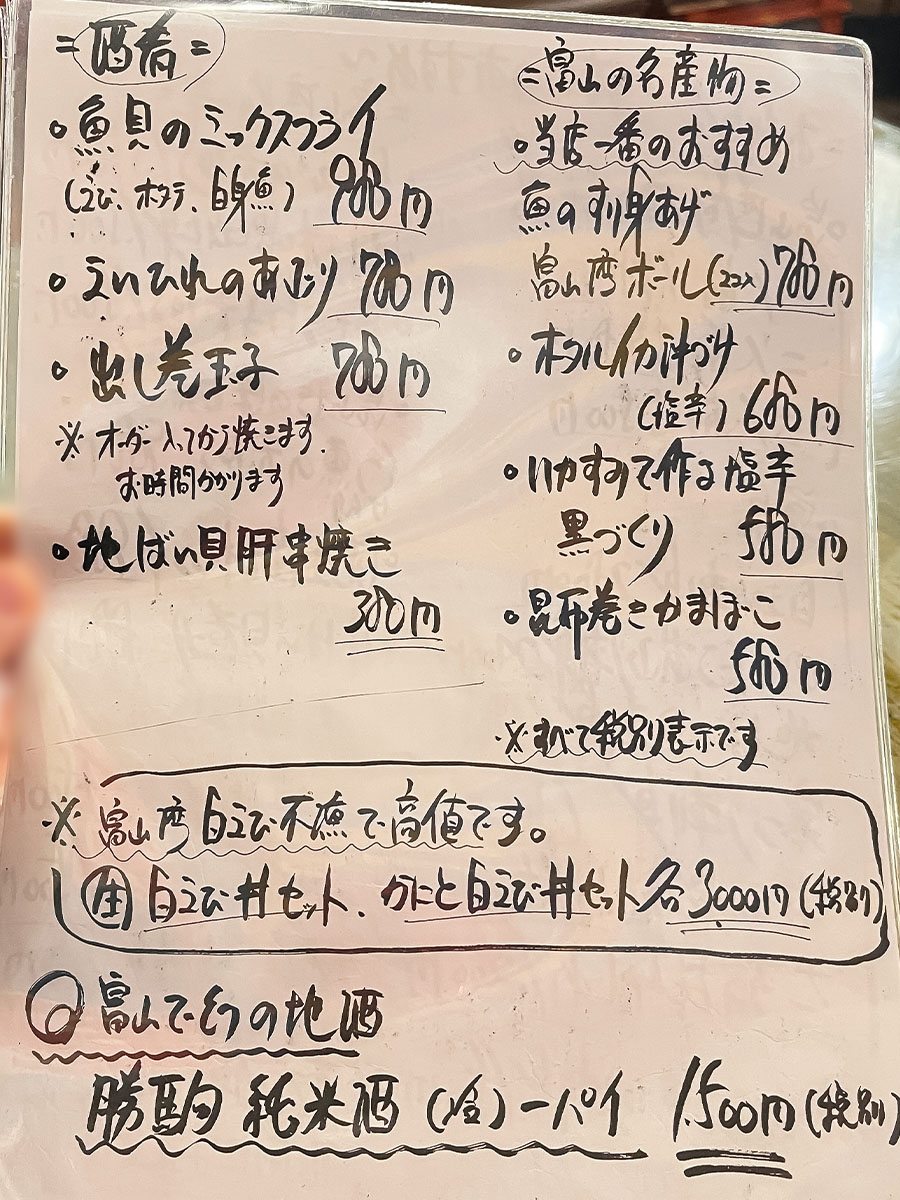 =酒肴=
。魚貝のミックスフライ
(えび、ホタテ、白身魚) 980円
。えいひれのあぶり 780円
。出し巻玉子 780円
※ オーダー入ってから焼きます。
お時間かかります
。地ばい貝肝串焼き
380円
=富山の名産物=
。当店一番のおすすめ
魚のすり身あげ
富山湾ボール(2コ入)780円
。ホタルイカ沖づけ
(塩辛)680円
。いかすみで作る塩辛
黒づくり 580円
。昆布巻きかまぼこ
580円
※すべて税別表示です
※富山湾白えび不漁で高値です。
生 白えび丼セット、かにと白えび丼セット各3000円(税別)
富山で の地酒
勝駒 純米酒 ( )一パイ 1,500円(税別)